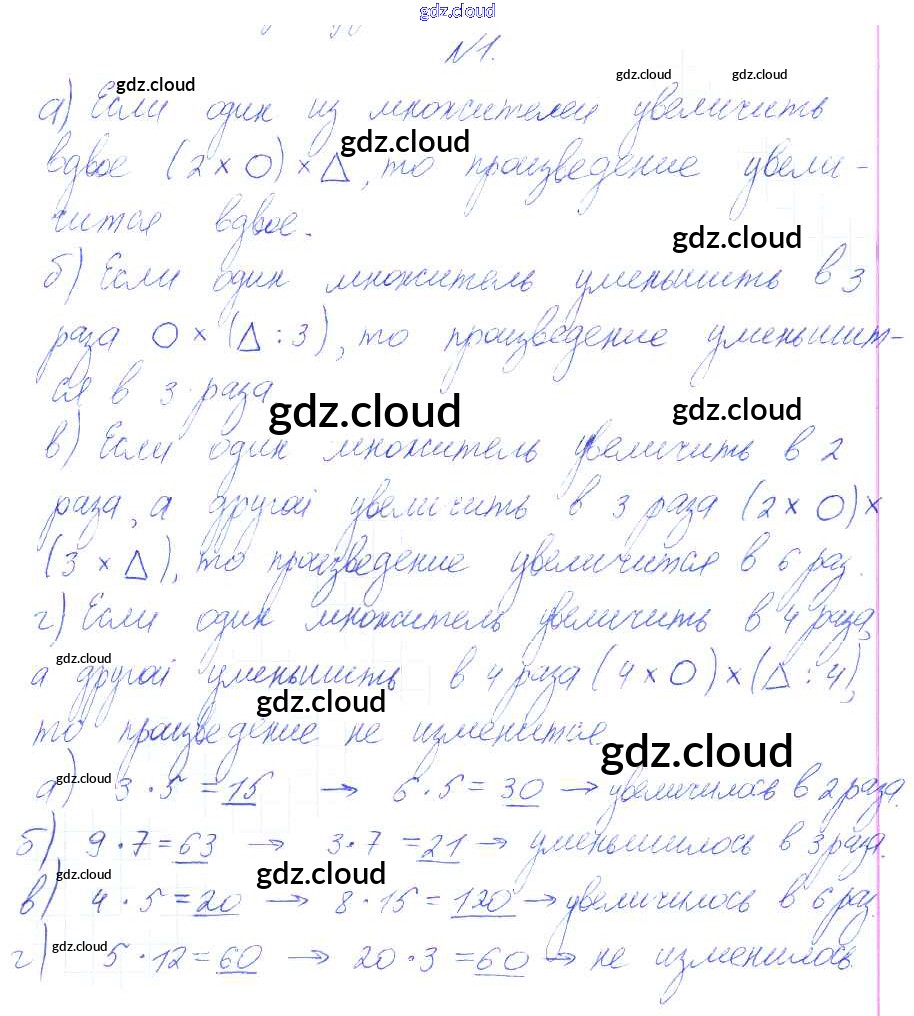 gdz.cloud
N1.
gdz.cloud gdz.cloud gdz.cloud
а) Если один из множителей увеличить
gdz.cloud
вдвое (2 × ○) × △, то произведение увели-
чится вдвое.
gdz.cloud
б) Если один множитель уменьшить в 3
раза ○ × (△ : 3), то произведение уменьшит-
ся в 3 раза
gdz.cloud gdz.cloud
в) Если один множитель увеличить в 2
раза, а другой увеличить в 3 раза (2 × ○) ×
(3 × △), то произведение увеличится в 6 раз.
г) Если один множитель увеличить в 4 раза,
gdz.cloud
а другой уменьшить в 4 раза (4 × ○) × (△ : 4),
gdz.cloud
то произведение не изменится
gdz.cloud
gdz.cloud
а) 3 · 5 = 15 → 6 · 5 = 30 → увеличилось в 2 раза.
б) 9 · 7 = 63 → 3 · 7 = 21 → уменьшилось в 3 раза.
gdz.cloud gdz.cloud
в) 4 · 5 = 20 → 8 · 15 = 120 → увеличилось в 6 раз.
gdz.cloud
г) 5 · 12 = 60 → 20 · 3 = 60 → не изменилось